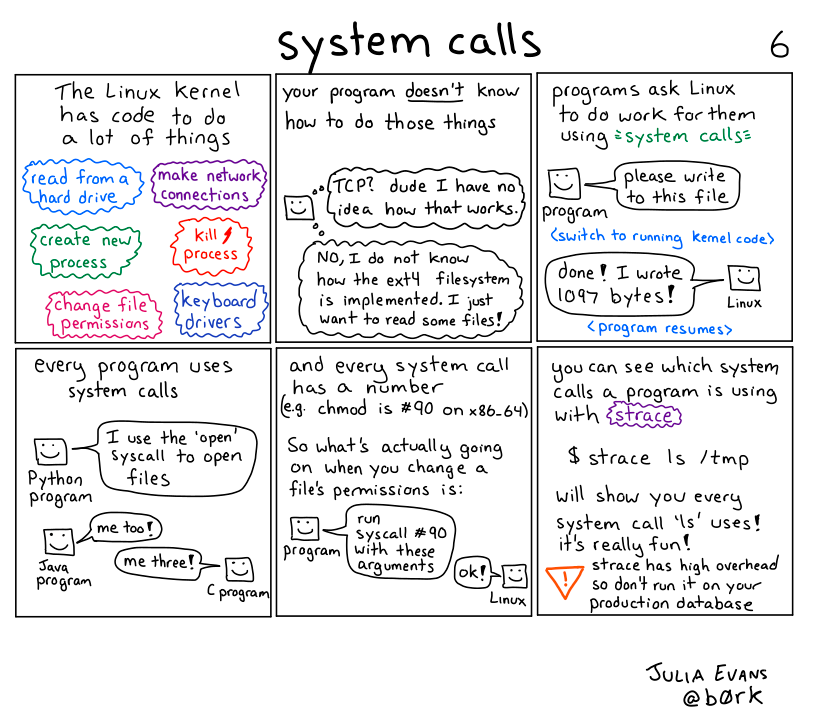 system calls
6
The Linux kernel
has code to do
a lot of things
read from a
hard drive
make network
connections
create new
process
kill
process
change file
permissions
keyboard
drivers
your program doesn't know
how to do those things
TCP? dude I have no
idea how that works.
NO, I do not know
how the ext4 filesystem
is implemented. I just
want to read some files!
programs ask Linux
to do work for them
using =system calls=
please write
to this file
program
<switch to running kernel code>
done! I wrote
1097 bytes!
Linux
<program resumes>
every program uses
system calls
I use the 'open'
syscall to open
files
Python
program
me too!
Java
program
me three!
C program
and every system call
has a number
(e.g. chmod is #90 on x86_64)
So what's actually going
on when you change a
file's permissions is:
run
syscall #90
with these
arguments
program
ok!
Linux
you can see which system
calls a program is using
with strace
$ strace ls /tmp
will show you every
system call 'ls' uses!
it's really fun!
!
strace has high overhead
so don't run it on your
production database
JULIA EVANS
@børk